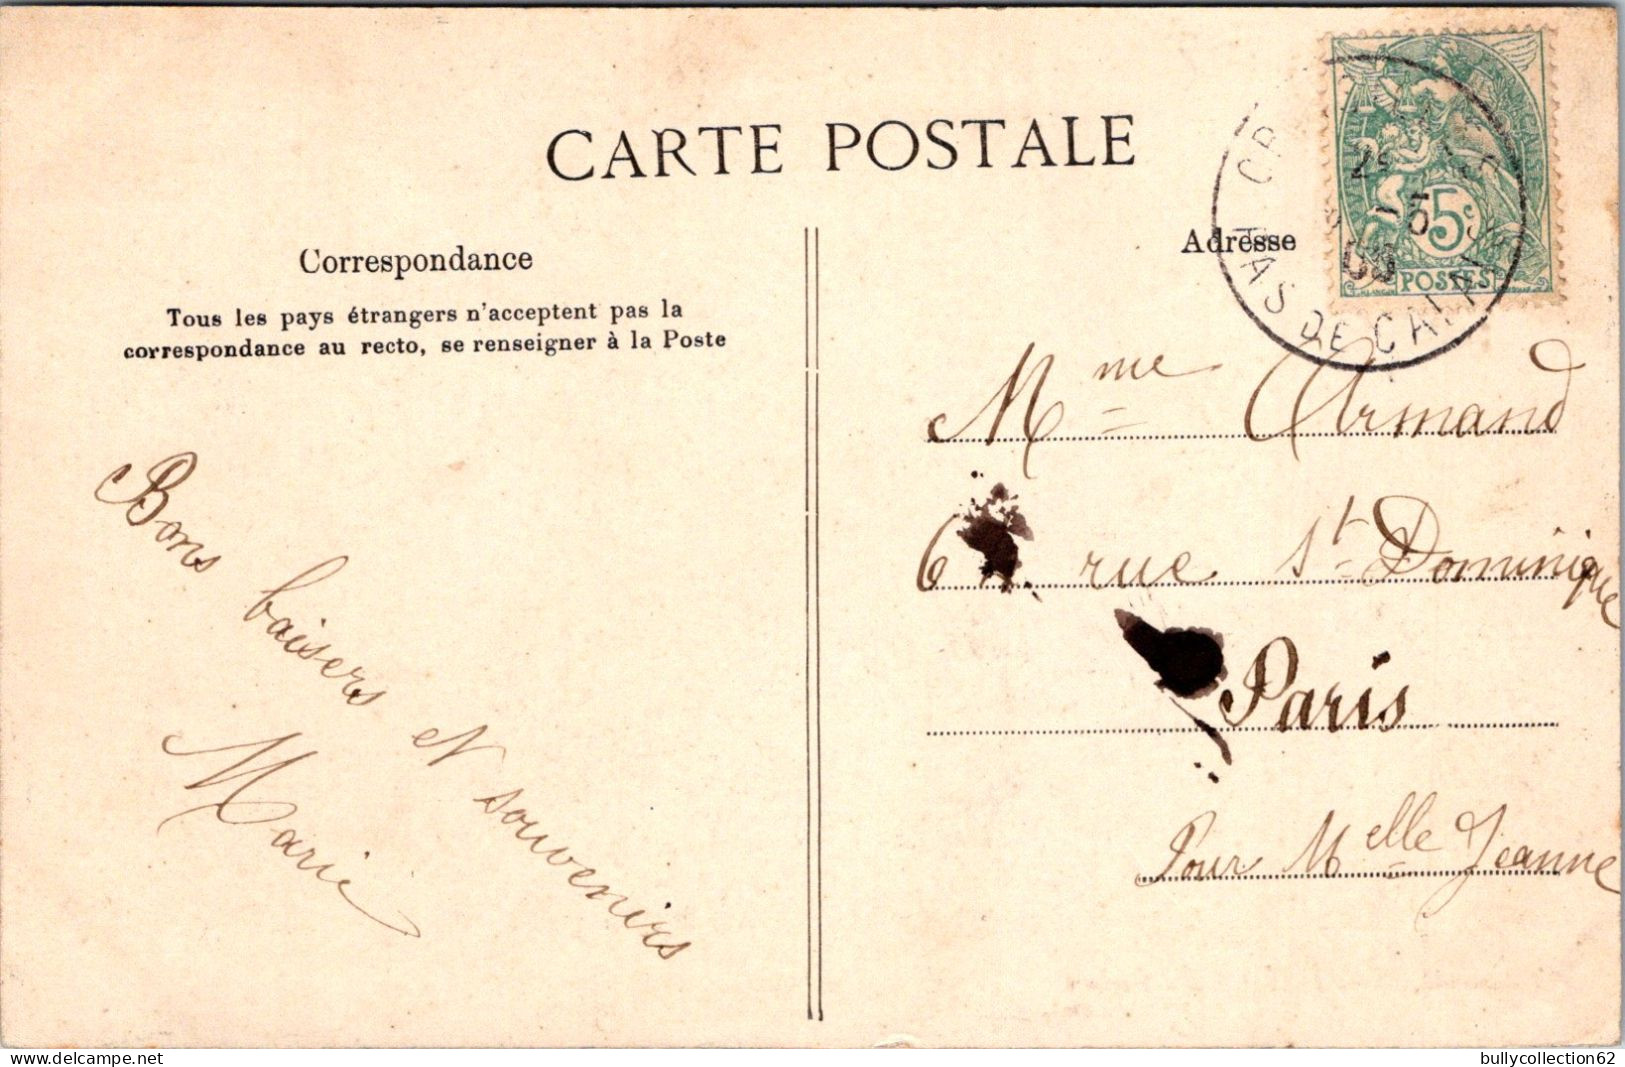 CARTE POSTALE
Correspondance
Tous les pays étrangers n'acceptent pas la
correspondance au recto, se renseigner à la Poste
Bons baisers et souvenirs
Marie
Adresse
5c
POSTES
PAS DE CALAIS
Mme Armand
6 rue St Dominique
Paris
Pour Melle Jeanne
delcampe.net
bullycollection62